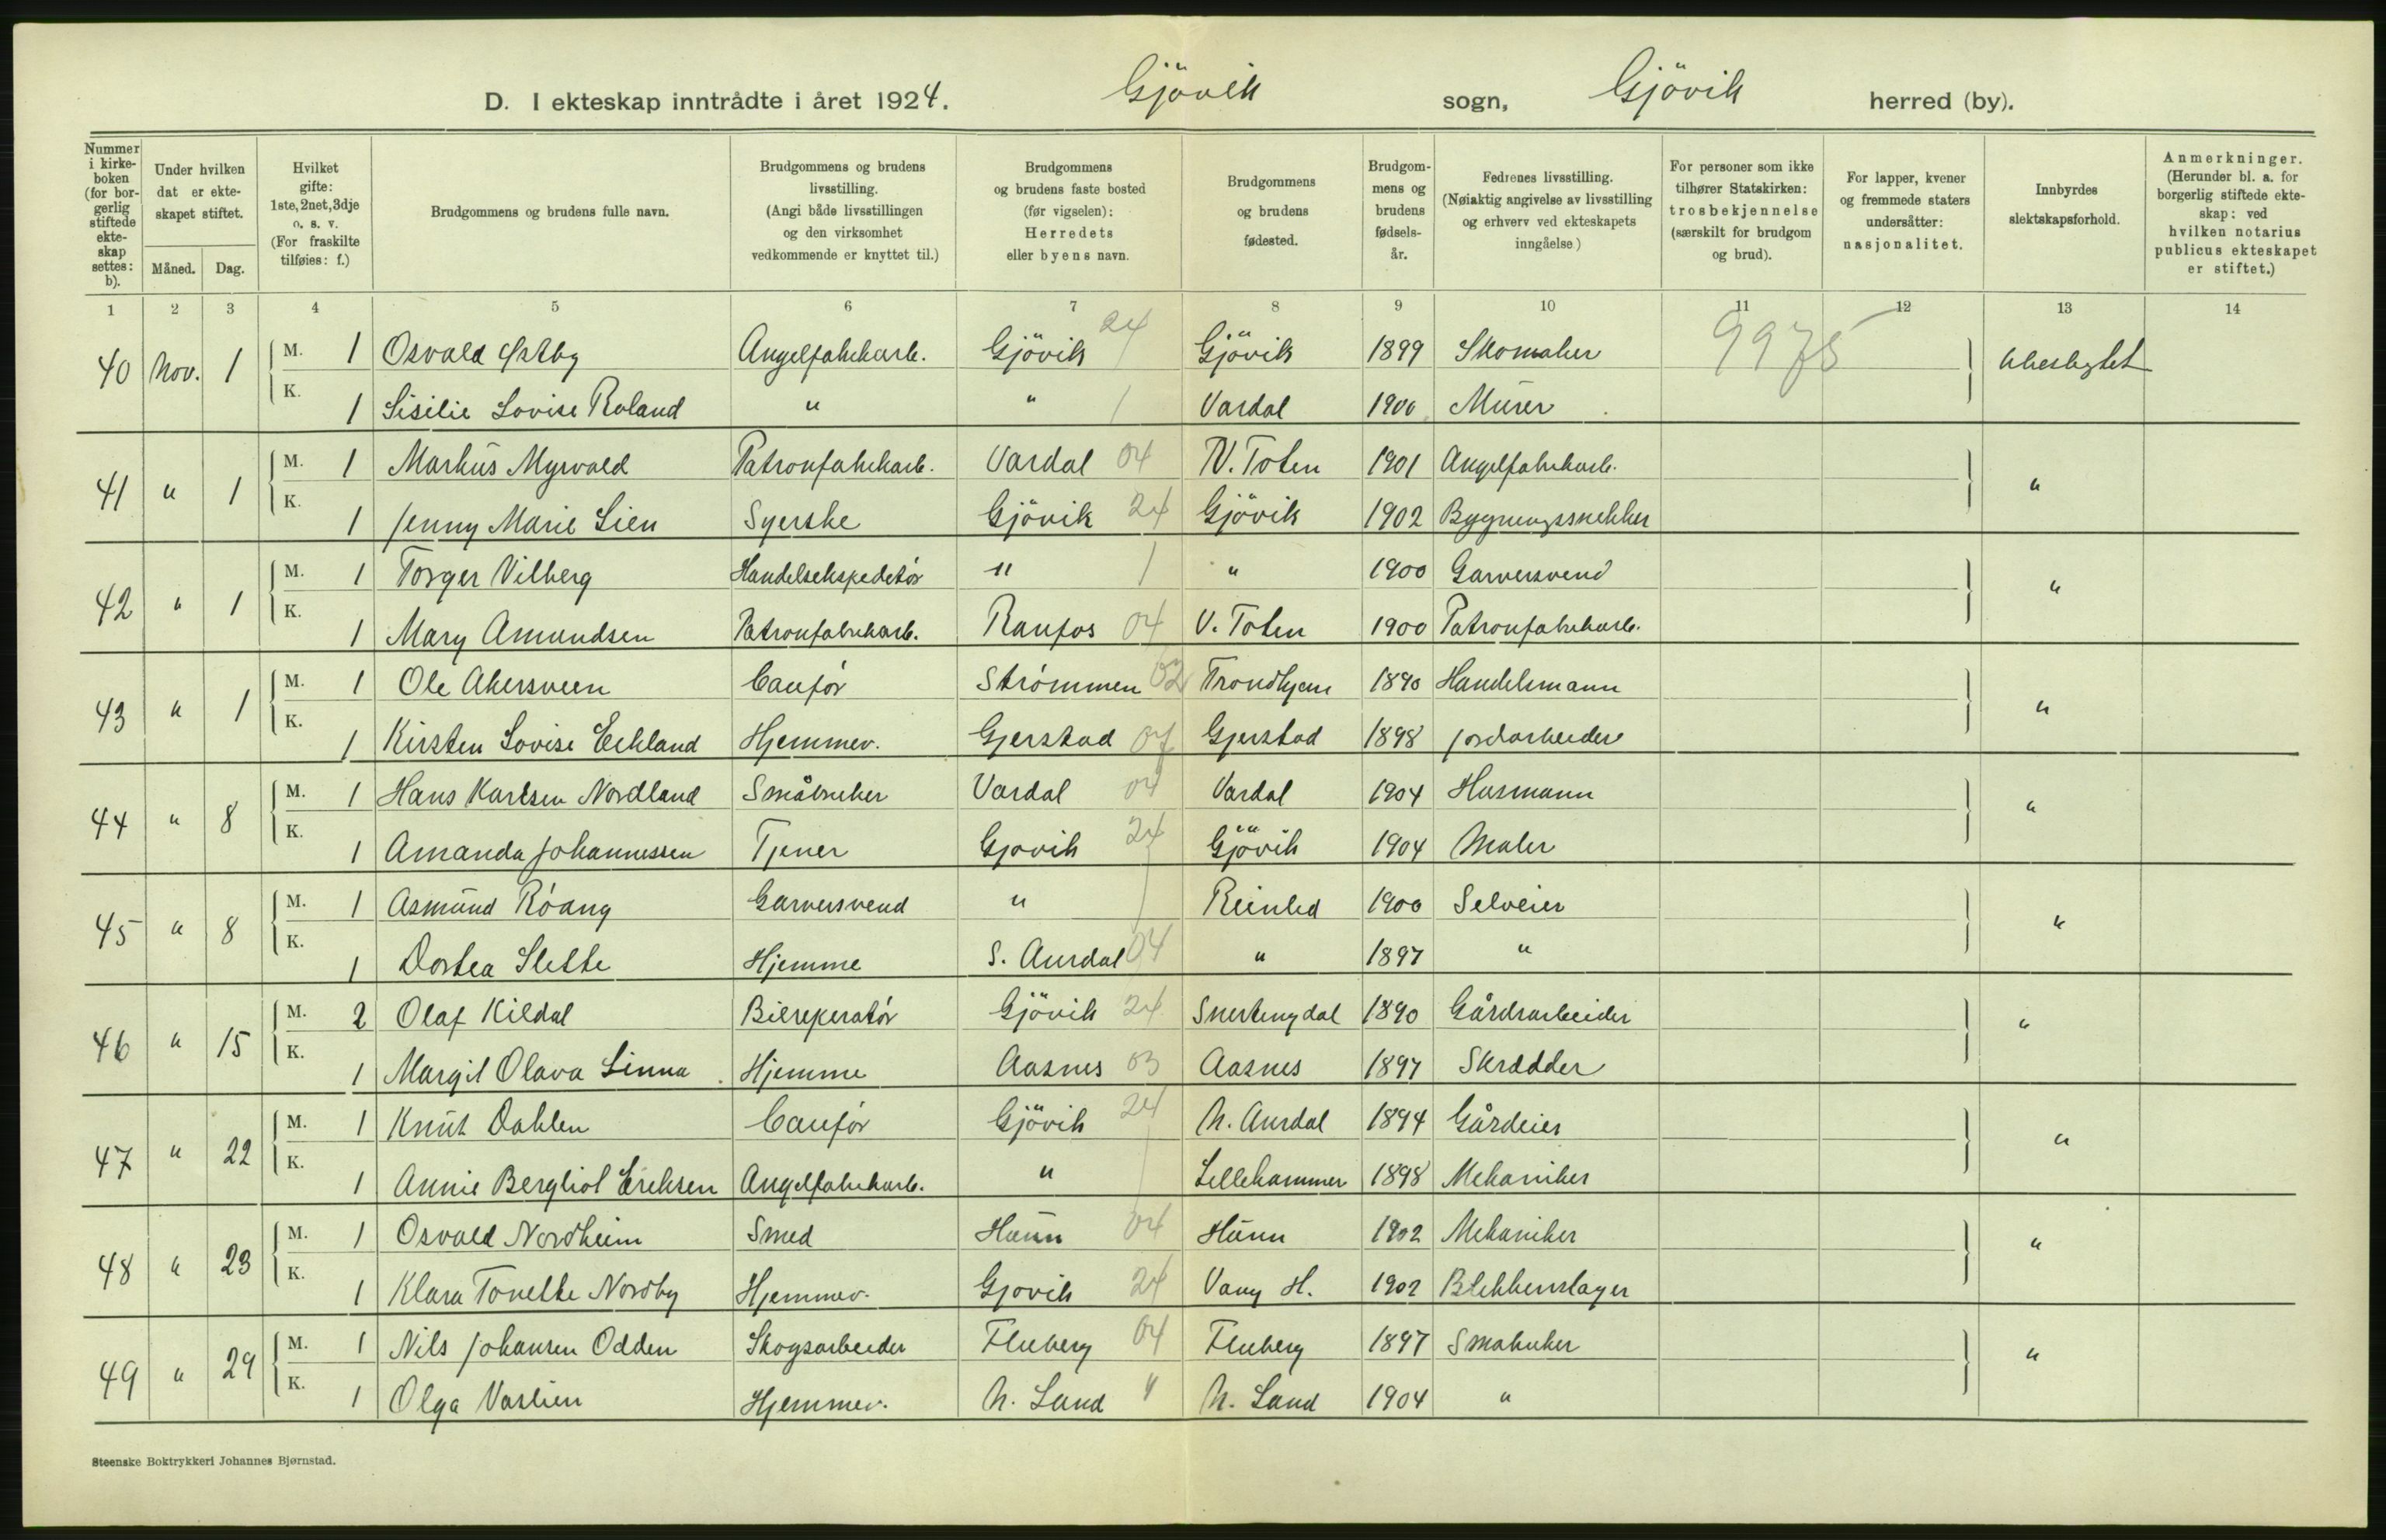 D. I ekteskap inntrådte i året 1924. Gjövik sogn, Gjövik herred (by).
Nummer i kirkeboken (for borgerlig stiftede ekteskap settes: b).
Under hvilken dat er ekteskapet stiftet.
Måned. Dag.
Hvilket gifte: 1ste, 2net, 3dje o. s. v. (For fraskilte tilføies: f.)
Brudgommens og brudens fulle navn.
Brudgommens og brudens livsstilling. (Angi både livsstillingen og den virksomhet vedkommende er knyttet til.)
Brudgommens og brudens faste bosted (før vigselen): Herredets eller byens navn.
Brudgommens og brudens fødested.
Brudgommens og brudens fødselsår.
Fedrenes livsstilling. (Nøiaktig angivelse av livsstilling og erhverv ved ekteskapets inngåelse)
For personer som ikke tilhører Statskirken: trosbekjennelse (særskilt for brudgom og brud).
For lapper, kvener og fremmede staters undersåtter: nasjonalitet.
Innbyrdes slektskapsforhold.
Anmerkninger. (Herunder bl. a. for borgerlig stiftede ekteskap: ved hvilken notarius publicus ekteskapet er stiftet.)
1 2 3 4 5 6 7 8 9 10 11 12 13 14
40 Nov. 1 M. 1 Osvald Østby Angelfabrikarb. Gjövik 24 Gjövik 1899 Skomaker 9975 Ubeslegtet
K. 1 Sisilie Lovise Roland " " Vardal 1900 Murer
41 " 1 M. 1 Markus Myrvold Patronfabrikarb. Vardal 04 V. Toten 1901 Angelfabrikarb. "
K. 1 Jenny Marie Lien Syerske Gjövik 24 Gjövik 1902 Bygningssnekker
42 " 1 M. 1 Torger Vilberg Handelsekspeditør " " 1900 Garversvend "
K. 1 Mary Amundsen Patronfabrikarb. Raufos 04 V. Toten 1900 Patronfabrikarb.
43 " 1 M. 1 Ole Akersveen Caufør Strømmen 02 Trondhjem 1890 Handelsmann "
K. 1 Kirsten Lovise Eckland Hjemmev. Gjerstad 07 Gjerstad 1898 Jordarbeider
44 " 8 M. 1 Hans Karlsen Nordland Småbruker Vardal 04 Vardal 1904 Husmann "
K. 1 Amanda Johannessen Tjener Gjovik 24 Gjövik 1904 Maler
45 " 8 M. 1 Asmund Röang Garversvend " Reinled 1900 Selveier "
K. 1 Dortea Slette Hjemme S. Aurdal 04 " 1897 "
46 " 15 M. 2 Olaf Kildal Bilreperatör Gjövik 24 Snertingdal 1890 Gårdsarbeider "
K. 1 Margit Olava Linna Hjemme Aasnes 03 Aasnes 1897 Skrædder
47 " 22 M. 1 Knut Dahlen Caufør Gjövik 24 N. Aurdal 1894 Gårdeier "
K. 1 Annie Bergliot Eriksen Angelfabrikarb. " Lillehammer 1898 Mekaniker
48 " 23 M. 1 Osvald Nordheim Smed Hunn 04 Hunn 1902 Mekaniker "
K. 1 Klara Tonette Nordby Hjemmev. Gjovik 24 Vang H. 1902 Blikkenslager
49 " 29 M. 1 Nils Johansen Odden Skogsarbeider Fluberg 04 Fluberg 1897 Smabruker "
K. 1 Olga Vaslien Hjemmev. N. Land " N. Land 1904 "
Steenske Boktrykkeri Johannes Bjørnstad.